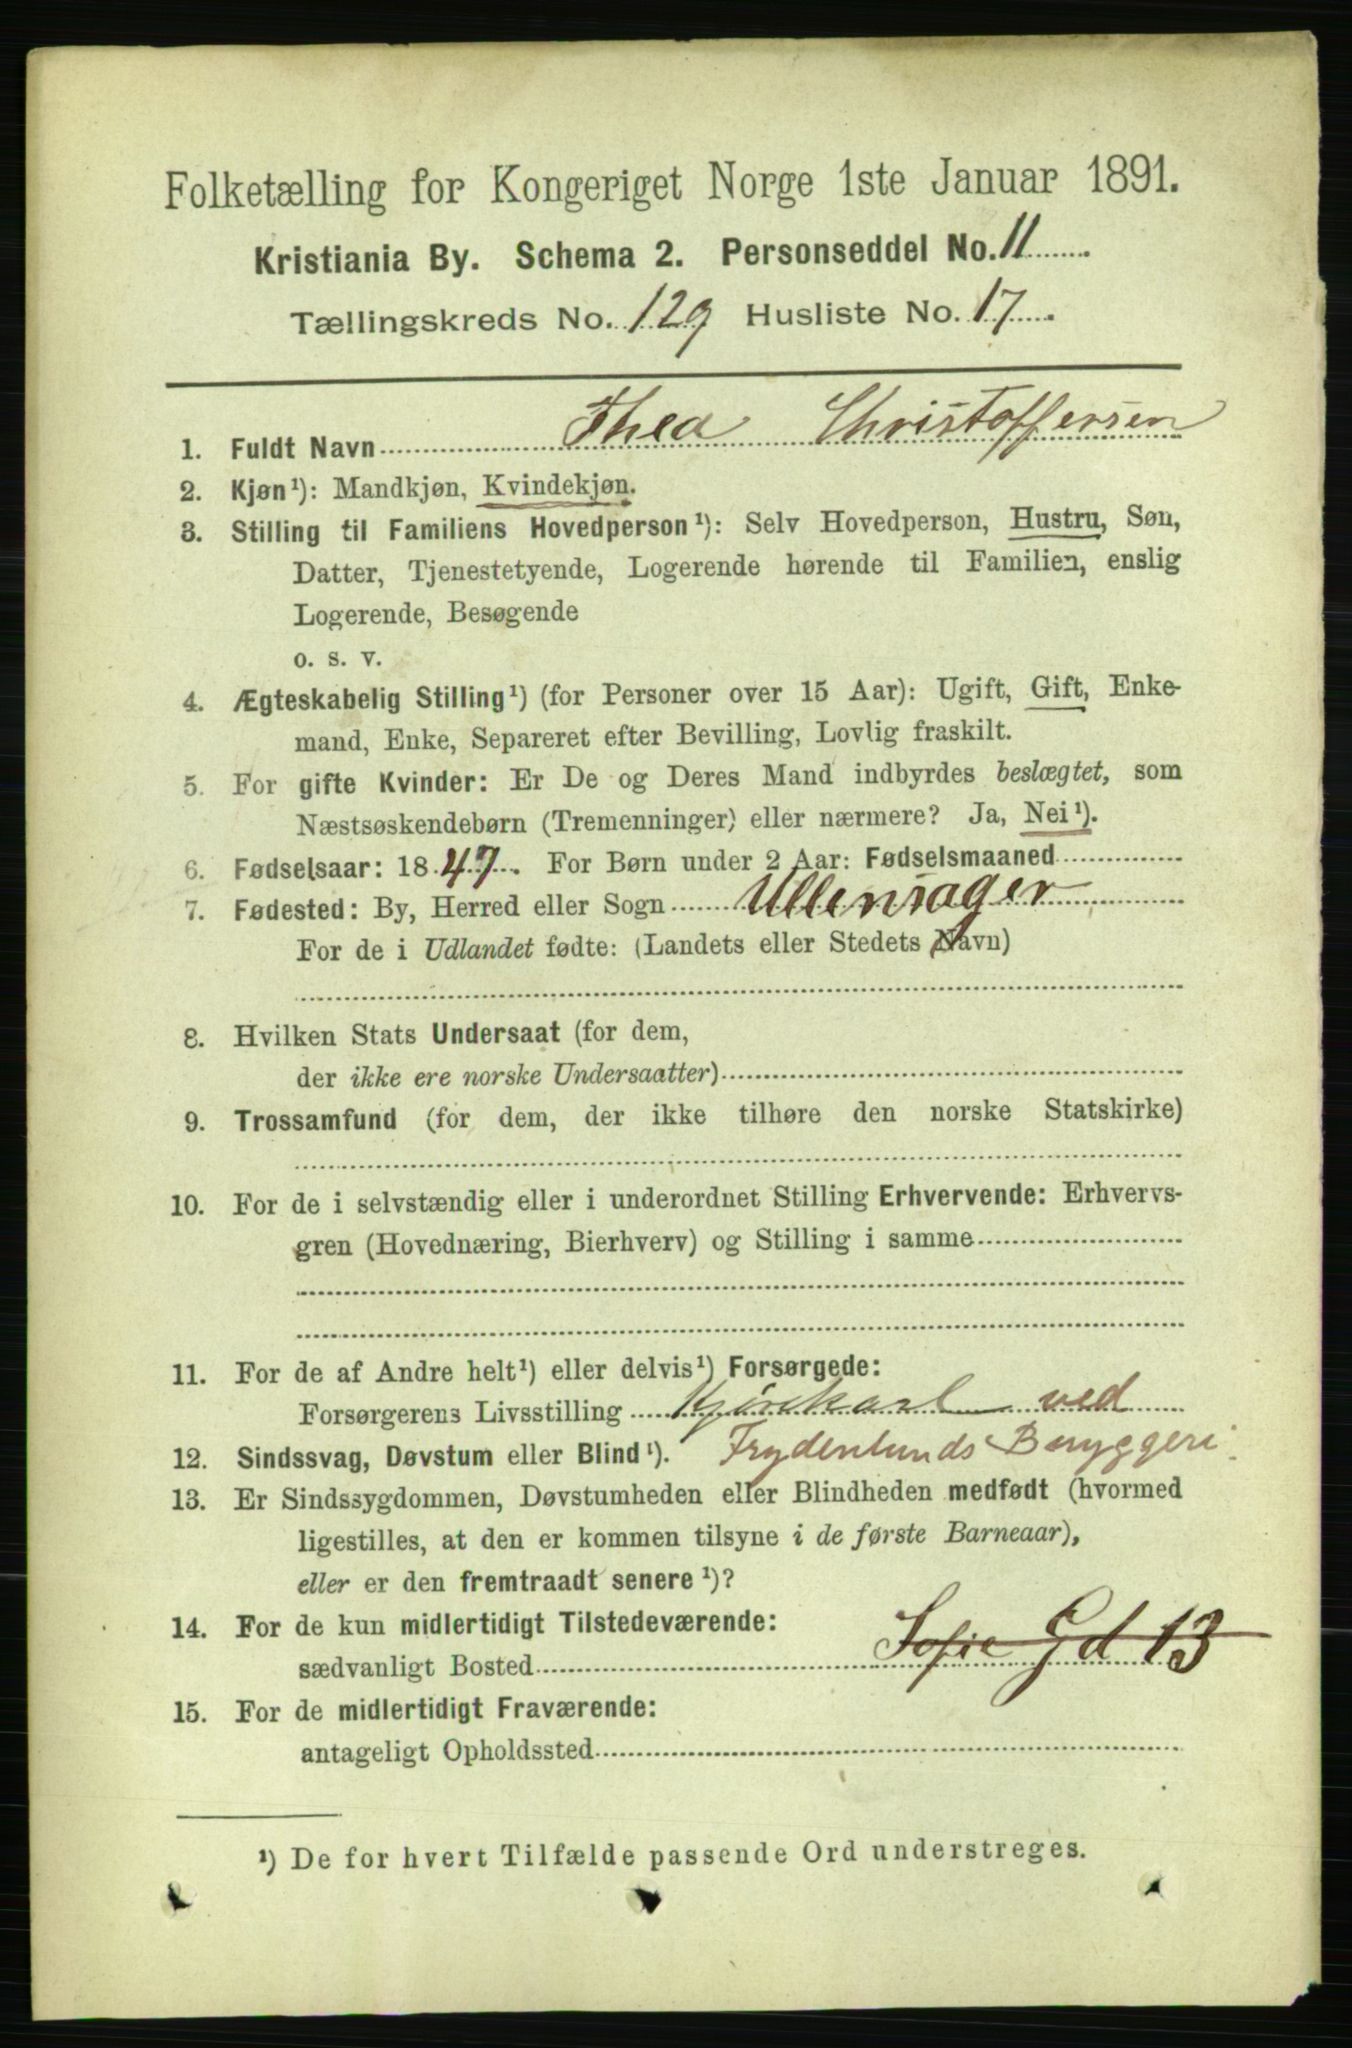 Folketælling for Kongeriget Norge 1ste Januar 1891.
Kristiania By. Schema 2. Personseddel No. 11
Tællingskreds No. 129 Husliste No. 17
1. Fuldt Navn Thea Christoffersen
2. Kjøn¹): Mandkjøn, Kvindekjøn.
3. Stilling til Familiens Hovedperson¹): Selv Hovedperson, Hustru, Søn,
Datter, Tjenestetyende, Logerende hørende til Familien, enslig
Logerende, Besøgende
o. s. v.
4. Ægteskabelig Stilling¹) (for Personer over 15 Aar): Ugift, Gift, Enke-
mand, Enke, Separeret efter Bevilling, Lovlig fraskilt.
5. For gifte Kvinder: Er De og Deres Mand indbyrdes beslægtet, som
Næstsøskendebørn (Tremenninger) eller nærmere? Ja, Nei¹).
6. Fødselsaar: 1847. For Børn under 2 Aar: Fødselsmaaned
7. Fødested: By, Herred eller Sogn Ullensager
For de i Udlandet fødte: (Landets eller Stedets Navn)
8. Hvilken Stats Undersaat (for dem,
der ikke ere norske Undersaatter)
9. Trossamfund (for dem, der ikke tilhøre den norske Statskirke)
10. For de i selvstændig eller i underordnet Stilling Erhvervende: Erhvervs-
gren (Hovednæring, Bierhverv) og Stilling i samme
11. For de af Andre helt¹) eller delvis¹) Forsørgede:
Forsørgerens Livsstilling Kjørekarl ved
12. Sindssvag, Døvstum eller Blind¹). Frydenlunds Bryggeri
13. Er Sindssygdommen, Døvstumheden eller Blindheden medfødt (hvormed
ligestilles, at den er kommen tilsyne i de første Barneaar),
eller er den fremtraadt senere¹)?
14. For de kun midlertidigt Tilstedeværende:
sædvanligt Bosted Sofie Gd 13
15. For de midlertidigt Fraværende:
antageligt Opholdssted
¹) De for hvert Tilfælde passende Ord understreges.